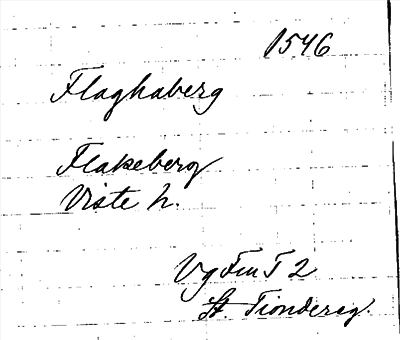 1546
Flaghaberg
Flakeberg
Viste h.
Vg Fm T 2
St. Tiondereg.